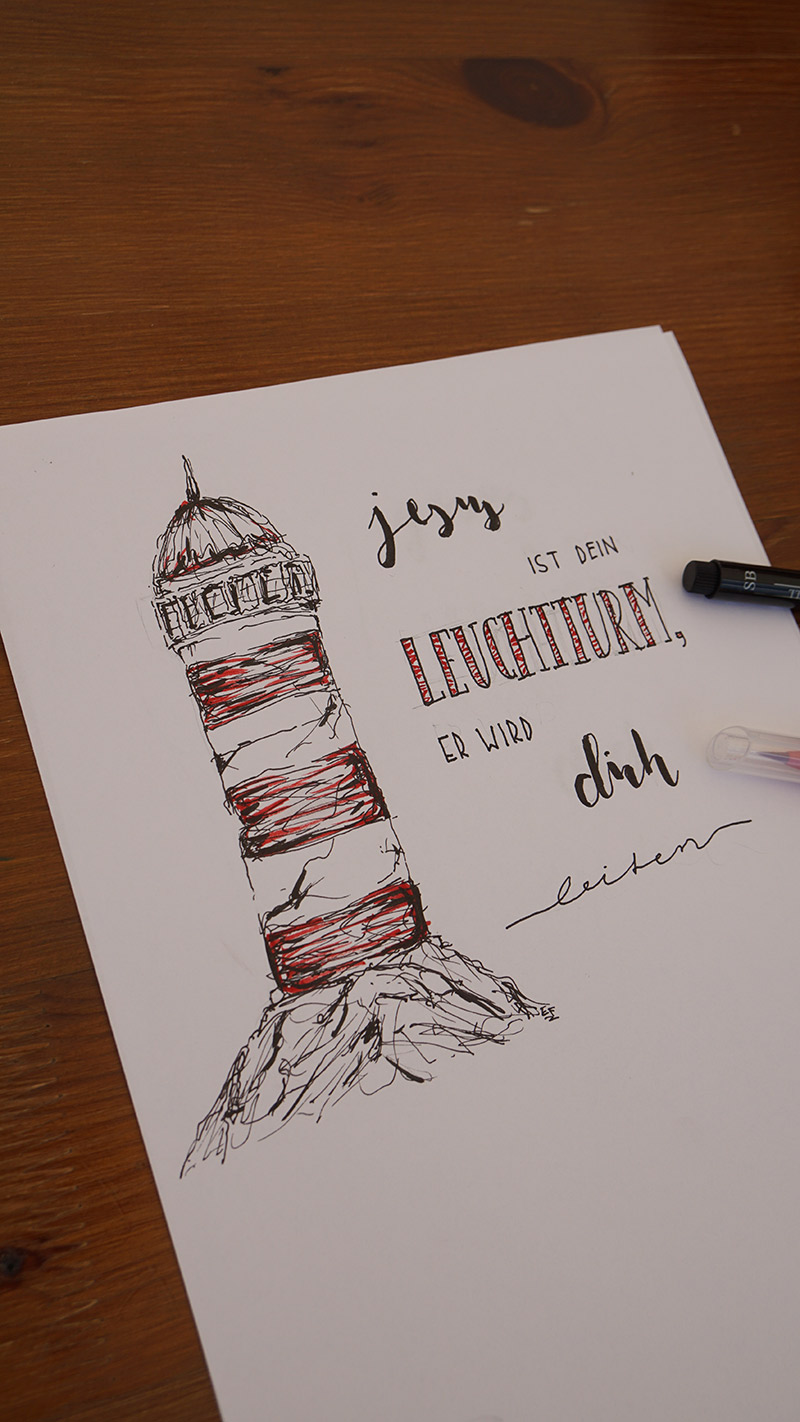 jesus
IST DEIN
LEUCHTTURM,
ER WIRD
dich
leiten
SB